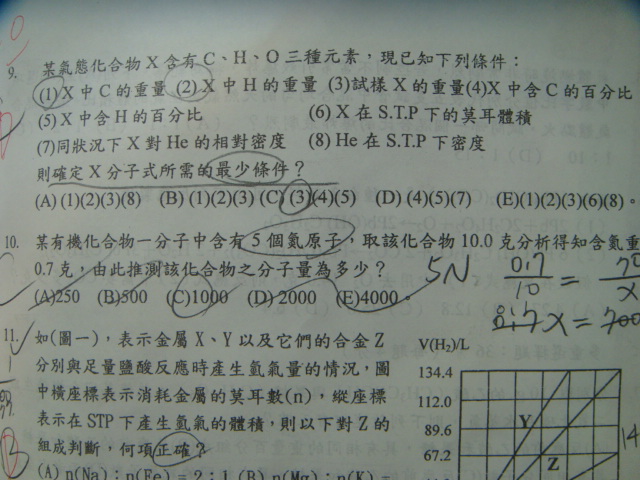 9. 某氣態化合物 X 含有 C、H、O 三種元素,現已知下列條件:
(1)X 中 C 的重量 (2)X 中 H 的重量 (3)試樣 X 的重量(4)X 中含 C 的百分比
(5) X 中含 H 的百分比 (6) X 在 S.T.P 下的莫耳體積
(7)同狀況下 X 對 He 的相對密度 (8) He 在 S.T.P 下密度
則確定 X 分子式所需的最少條件?
(A) (1)(2)(3)(8) (B) (1)(2)(3) (C) (3)(4)(5) (D) (4)(5)(7) (E)(1)(2)(3)(6)(8)。
10. 某有機化合物一分子中含有 5 個氮原子,取該化合物 10.0 克分析得知含氮重
0.7 克,由此推測該化合物之分子量為多少?
(A)250 (B)500 (C)1000 (D) 2000 (E)4000。
5N 0.7/10 = 70/x
0.7x = 700
11. 如(圖一),表示金屬 X、Y 以及它們的合金 Z
分別與足量鹽酸反應時產生氫氣量的情況,圖
中橫座標表示消耗金屬的莫耳數(n),縱座標
表示在 STP 下產生氫氣的體積,則以下對 Z 的
組成判斷,何項正確?
(A) n(Na):n(Fe) = 2:1 (B) n(Mg):n(K) =
V(H₂)/L
134.4
112.0
89.6
67.2
Y
Z
14